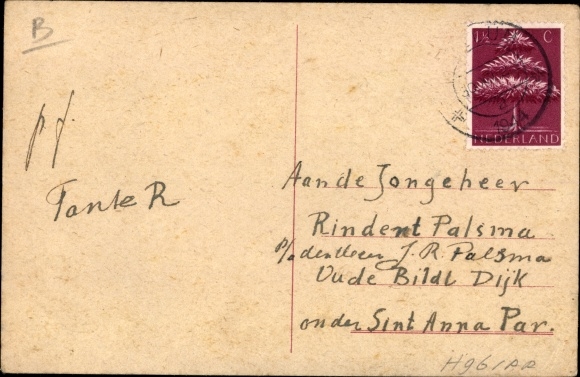 B
1½ C
1944
NEDERLAND
p.f.
Tante R
Aan de Jongeheer
Rindert Palsma
p/a den Heer J. R. Palsma
Oude Bildt Dijk
onder Sint Anna Par.
H961AR